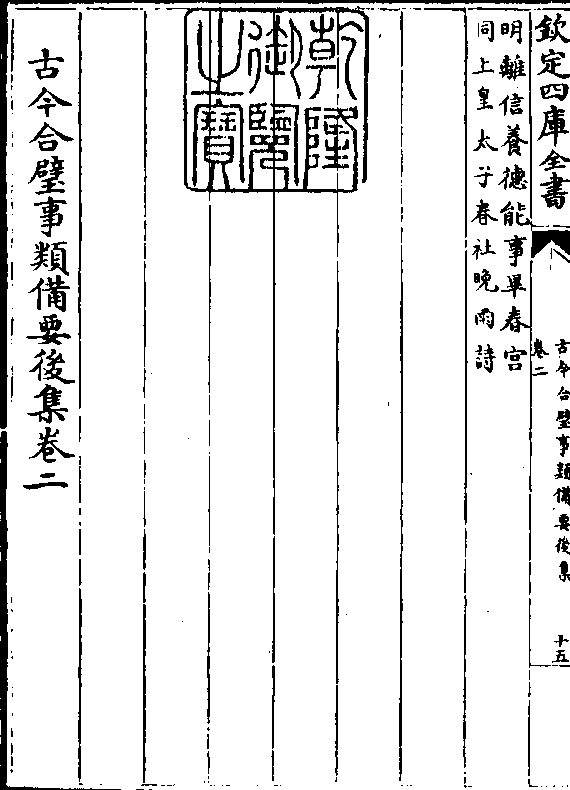 欽定四庫全書
古今合璧事類備要後集
卷二
十五
明離信養德能事畢春宮
同上皇太子春社晚雨詩
乾隆御覽之寶
古今合璧事類備要後集卷二